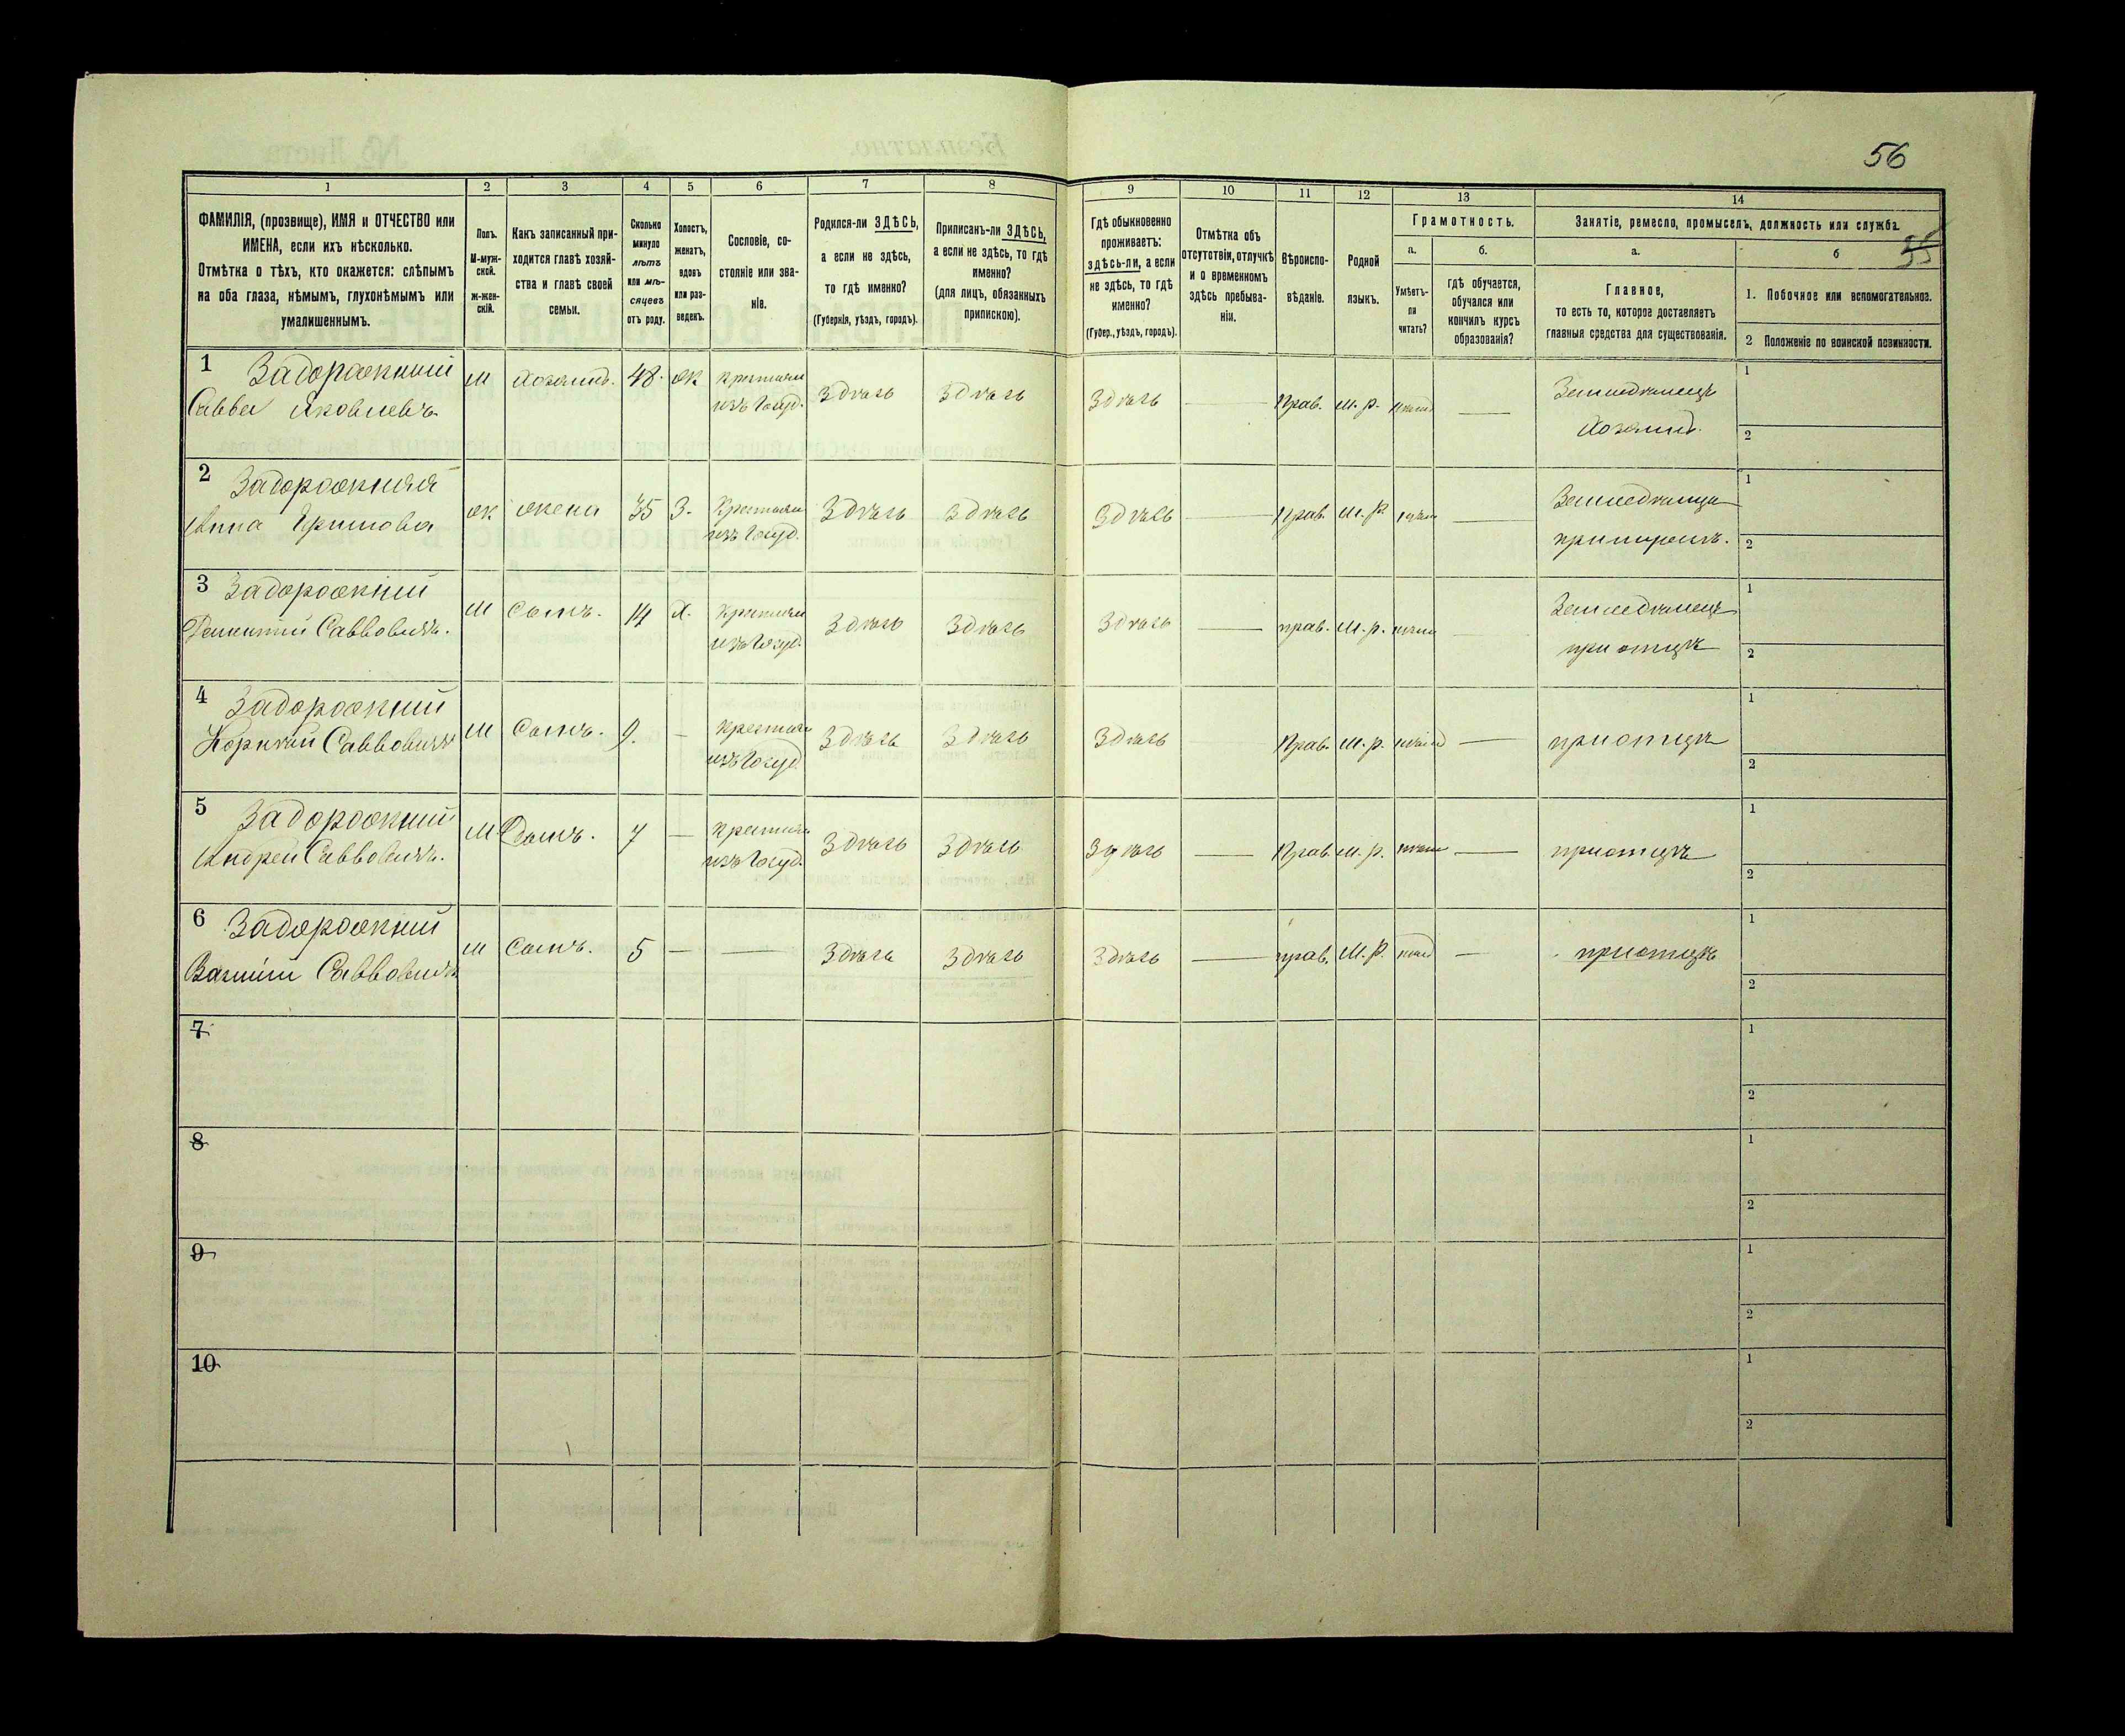 56
1 2 3 4 5 6 7 8 9 10 11 12 13 14
ФАМИЛІЯ, (прозвище), ИМЯ и ОТЧЕСТВО или
ИМЕНА, если ихъ нѣсколько.
Отмѣтка о тѣхъ, кто окажется: слѣпымъ
на оба глаза, нѣмымъ, глухонѣмымъ или
умалишеннымъ.
Полъ.
М-муж-
ской.
ж-жен-
скій.
Какъ записанный при-
ходится главѣ хозяй-
ства и главѣ своей
семьи.
Сколько
минуло
лѣтъ
или мѣ-
сяцевъ
отъ роду.
Холостъ,
женатъ,
вдовъ
или раз-
веденъ.
Сословіе, со-
стояніе или зва-
ніе.
Родился-ли ЗДѢСЬ,
а если не здѣсь,
то гдѣ именно?
(Губернія, уѣздъ, городъ).
Приписанъ-ли ЗДѢСЬ,
а если не здѣсь, то гдѣ
именно?
(для лицъ, обязанныхъ
припискою).
Гдѣ обыкновенно
проживаетъ:
здѣсь-ли, а если
не здѣсь, то гдѣ
именно?
(Губер., уѣздъ, городъ).
Отмѣтка объ
отсутствіи, отлучкѣ
и о временномъ
здѣсь пребыва-
ніи.
Вѣроиспо-
вѣданіе.
Родной
языкъ.
Грамотность.
а.
Умѣетъ-
ли
читать?
б.
гдѣ обучается,
обучался или
кончилъ курсъ
образованія?
Занятіе, ремесло, промыселъ, должность или служба.
а.
Главное,
то есть то, которое доставляетъ
главныя средства для существованія.
б
35
1. Побочное или вспомогательное.
2 Положеніе по воинской повинности.
1 Задорожный м хозяинъ. 48. ж крестьян здѣсь здѣсь здѣсь — Прав. м. р. — Земледѣлецъ 1
Савва Яковлевъ изъ Госуд. хозяинъ. 2
2 Задорожняя ж жена 35 З. Крестьян здѣсь здѣсь здѣсь — прав. м. р. — 1
Анна изъ Госуд. 2
3 Задорожній м сынъ. 14 х. Крестьян здѣсь здѣсь здѣсь — прав. м. р. Земледѣлецъ 1
Савовичъ. изъ Госуд. при отцѣ 2
4 Задорожний м сынъ. 9. — крестьян здѣсь здѣсь здѣсь Прав. м. р. — при отцѣ 1
Корнѣй Савовичъ изъ Госуд. 2
5 Задорожний м сынъ. 7 — крестьян здѣсь здѣсь здѣсь — Прав. м. р. — при отцѣ 1
Андрей Савовичъ. изъ Госуд. 2
6 Задорожний м сынъ. 5 — — здѣсь здѣсь здѣсь — прав. м. р. — при отцѣ 1
Савовичъ 2
7 1
2
8 1
2
9 1
2
10 1
2